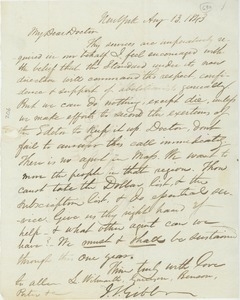 New York Aug 13. 1843
My Dear Doctor
This services are imperatively re
quired in our behalf I feel encouraged with
the belief that the Standard under its new
direction will command the respect, confi
dence & support of abolitionists generally
But we can do nothing except die, unless
we make efforts to second the exertions of
the Editor to keep it up Doctor, don't
fail to answer this call immediately
There is no agent in Mass. We want to
move the people in that region. Thou
canst take the Dollar list, & the
subscription list, & do essential ser
vice. Give us thy right hand of
help - & what other agent can we
have? We must & shall be sustained
through this one year.
Thine truly with love
to all S. Gardner, Benson,
J. S. Gibbons